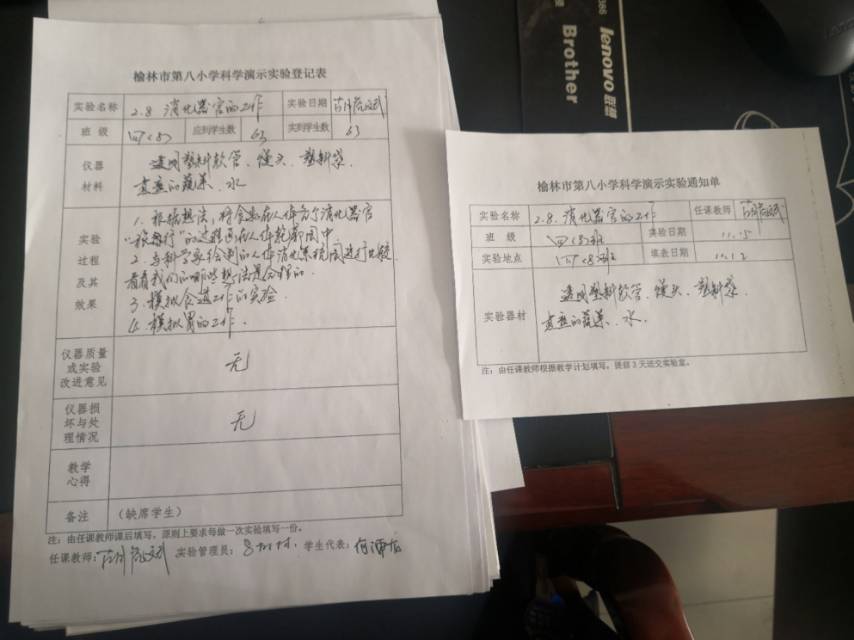 榆林市第八小学科学演示实验登记表
实验名称 2.8 消化器官的工作 实验日期
班 级 四<8> 应到学生数 63 实到学生数 63
仪器材料
透明塑料软管、馒头、塑料袋、
煮熟的蔬菜、水
实验过程及其效果
1. 根据想法,将食物在人体各个消化器官
"旅行"的过程画在人体轮廓图中
2. 与科学家绘制的人体消化系统图进行比较
看看我们的哪些想法是合理的.
3. 模拟食道工作的实验
4. 模拟胃的工作.
仪器质量或实验改进意见 无
仪器损坏与处理情况 无
教学心得
备注 (缺席学生)
注:由任课教师课后填写,原则上要求每做一次实验填写一份。
任课教师: 实验管理员: 学生代表:
榆林市第八小学科学演示实验通知单
实验名称 2.8. 消化器官的工作 任课教师
班 级 四<8>班 实验日期 11.15
实验地点 四<8>班 填表日期 11.12
实验器材
透明塑料软管、馒头、塑料袋、
煮熟的蔬菜、水.
注:由任课教师根据教学计划填写,提前3天送交实验室。
lenovo 联想
Brother